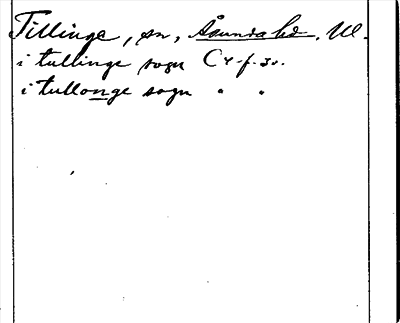 Tillinge, sn, Åsunda hd. Ul.
i tullinge sogn C 4. f. 30.
i tullonge sogn " "